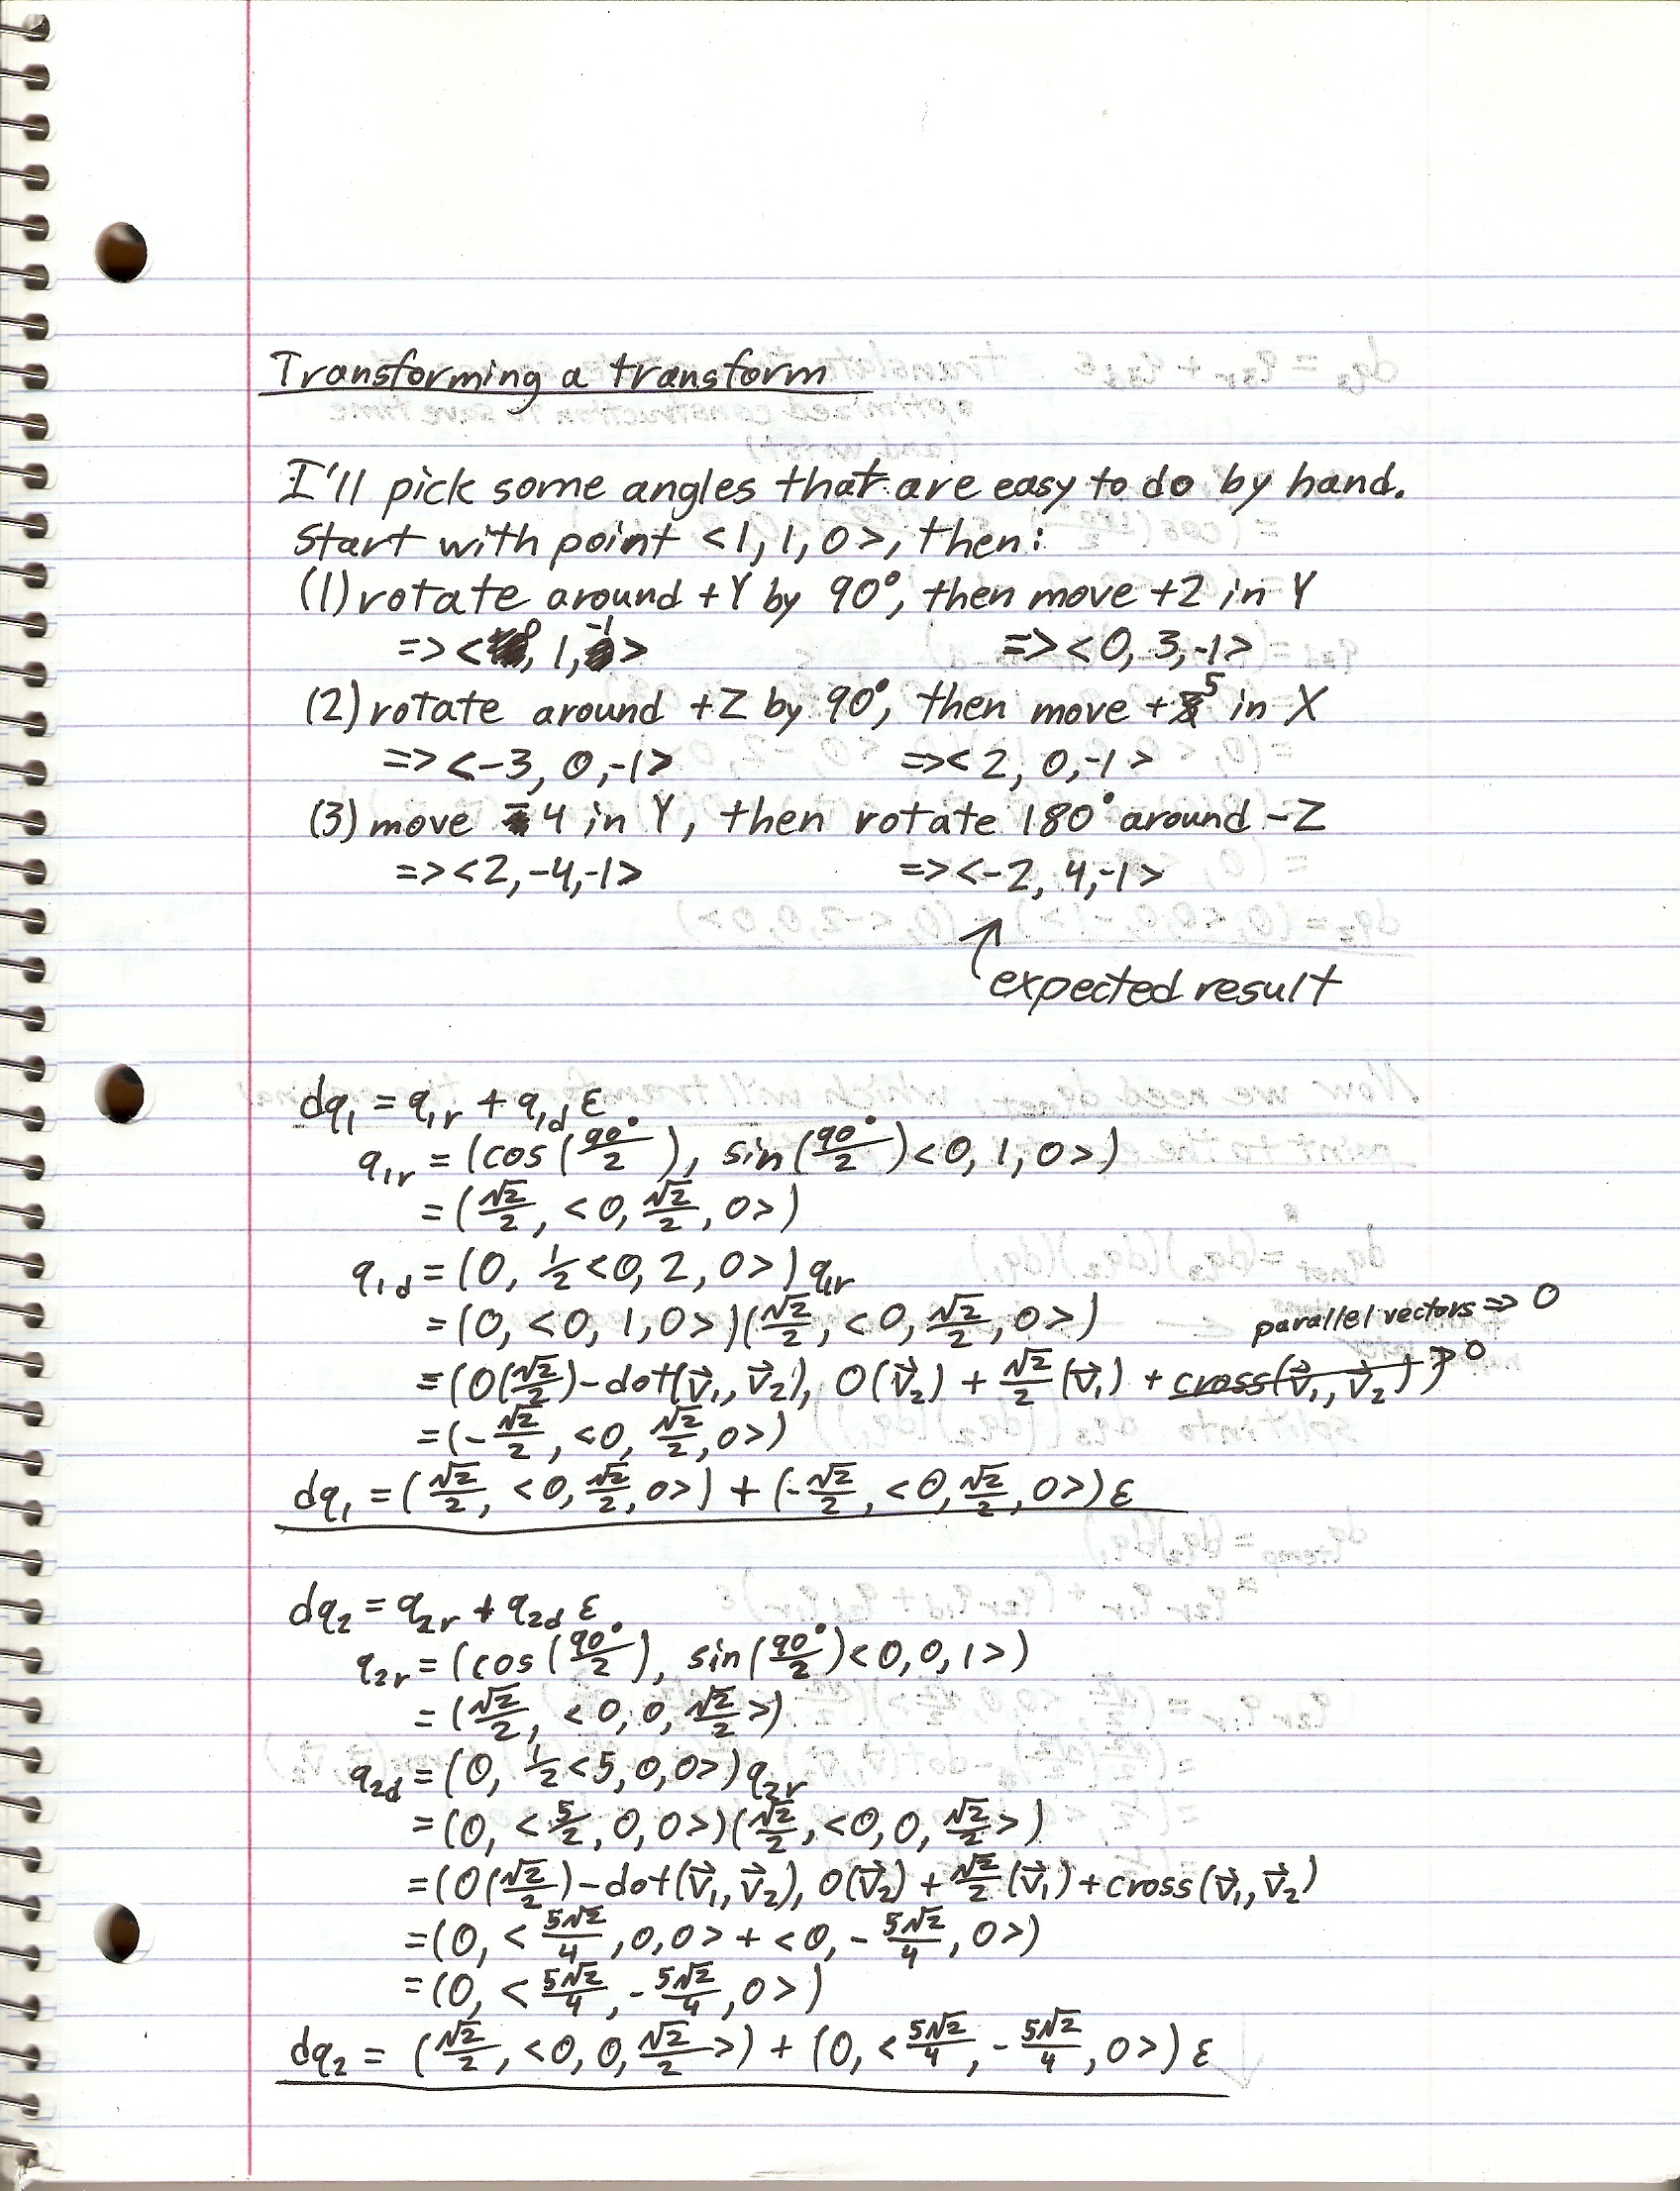 Transforming a transform
I'll pick some angles that are easy to do by hand.
Start with point <1, 1, 0>, then:
(1) rotate around +Y by 90°, then move +2 in Y
=> <0, 1, -1> => <0, 3, -1>
(2) rotate around +Z by 90°, then move +5 in X
=> <-3, 0, -1> => <2, 0, -1>
(3) move -4 in Y, then rotate 180° around -Z
=> <2, -4, -1> => <-2, 4, -1>
↑
expected result
dq₁ = q₁r + q₁d ε
q₁r = (cos(90°/2), sin(90°/2)<0, 1, 0>)
= (√2/2, <0, √2/2, 0>)
q₁d = (0, 1/2<0, 2, 0>) q₁r
= (0, <0, 1, 0>)(√2/2, <0, √2/2, 0>)
parallel vectors => 0
= (0(√2/2) - dot(v⃗₁, v⃗₂), 0(v⃗₂) + √2/2(v⃗₁) + cross(v⃗₁, v⃗₂)) → 0
= (-√2/2, <0, √2/2, 0>)
dq₁ = (√2/2, <0, √2/2, 0>) + (-√2/2, <0, √2/2, 0>)ε
dq₂ = q₂r + q₂d ε
q₂r = (cos(90°/2), sin(90°/2)<0, 0, 1>)
= (√2/2, <0, 0, √2/2>)
q₂d = (0, 1/2<5, 0, 0>) q₂r
= (0, <5/2, 0, 0>)(√2/2, <0, 0, √2/2>)
= (0(√2/2) - dot(v⃗₁, v⃗₂), 0(v⃗₂) + √2/2(v⃗₁) + cross(v⃗₁, v⃗₂)
= (0, <5√2/4, 0, 0> + <0, -5√2/4, 0>)
= (0, <5√2/4, -5√2/4, 0>)
dq₂ = (√2/2, <0, 0, √2/2>) + (0, <5√2/4, -5√2/4, 0>)ε